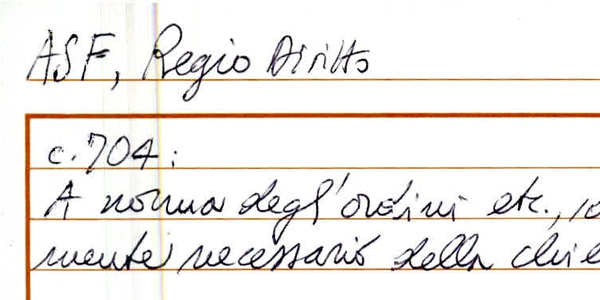 ASF, Regio Diritto
c. 704:
A norma degl'ordini etc.,
mente necessario della